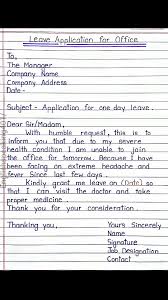 Leave Application for Office
To,
The Manager
Company Name
Company Address
Date -
Subject - Application for one day leave.
Dear Sir/Madam,
With humble request, this is to
inform you that due to my severe
health condition I am unable to join
the office for tomorrow. Because I have
been facing an extreme headache and
fever Since last few days.
Kindly grant me leave on (Date) so
that I can visit the doctor and take
proper medicine.
Thank you for your consideration.
Thanking you,
Yours Sincerely
Name
Signature
Job Designation
Contact